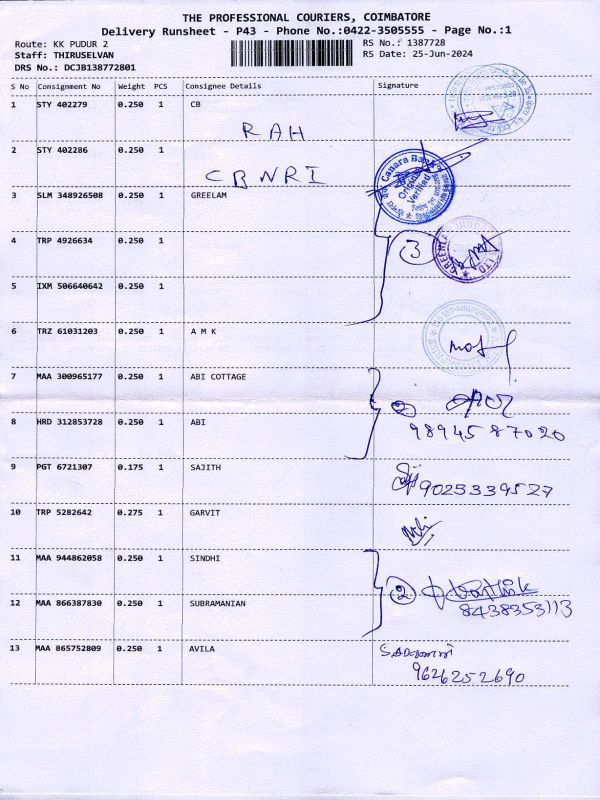 THE PROFESSIONAL COURIERS, COIMBATORE
Delivery Runsheet - P43 - Phone No.:0422-3505555 - Page No.:1
Route: KK PUDUR 2 RS No.: 1387728
Staff: THIRUSELVAN RS Date: 25-Jun-2024
DRS No.: DCJB138772801
S No Consignment No Weight PCS Consignee Details Signature
1 STY 402279 0.250 1 CB
RAH
2 STY 402286 0.250 1
CBNRI
Canara Bank
Original
Verified
3 SLM 348926508 0.250 1 GREELAM
4 TRP 4926634 0.250 1
3
5 IXM 506640642 0.250 1
6 TRZ 61031203 0.250 1 A M K
7 MAA 300965177 0.250 1 ABI COTTAGE
2
8 HRD 312853728 0.250 1 ABI
9894587020
9 PGT 6721307 0.175 1 SAJITH
9025339527
10 TRP 5282642 0.275 1 GARVIT
11 MAA 944862058 0.250 1 SINDHI
2
12 MAA 866387830 0.250 1 SUBRAMANIAN
8438353113
13 MAA 865752809 0.250 1 AVILA
9626252690